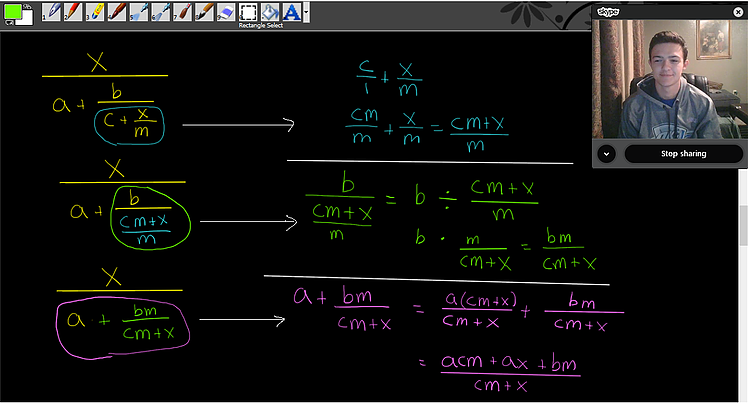 1 2 3 4 5 6 7 8
Rectangle Select
skype
Stop sharing
x / (a + b / (c + x/m))
c/1 + x/m
cm/m + x/m = (cm+x)/m
x / (a + b / ((cm+x)/m))
b / ((cm+x)/m) = b ÷ (cm+x)/m
b · m/(cm+x) = bm/(cm+x)
x / (a + bm/(cm+x))
a + bm/(cm+x) = a(cm+x)/(cm+x) + bm/(cm+x)
= (acm + ax + bm)/(cm+x)